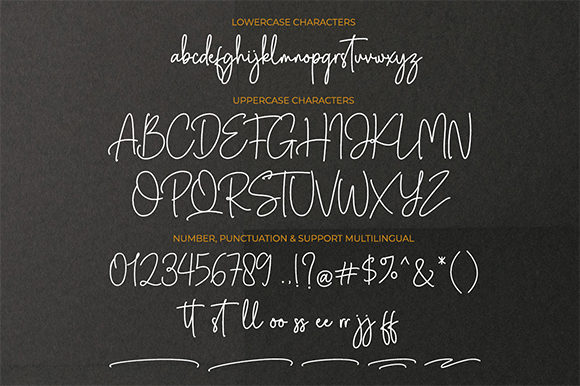 LOWERCASE CHARACTERS
abcdefghijklmnopqrstuvwxyz
UPPERCASE CHARACTERS
ABCDEFGHIJKLMN
OPQRSTUVWXYZ
NUMBER, PUNCTUATION & SUPPORT MULTILINGUAL
0123456789 .,!?@#$%^&*()
tt st ll oo ss ee rr jj ff